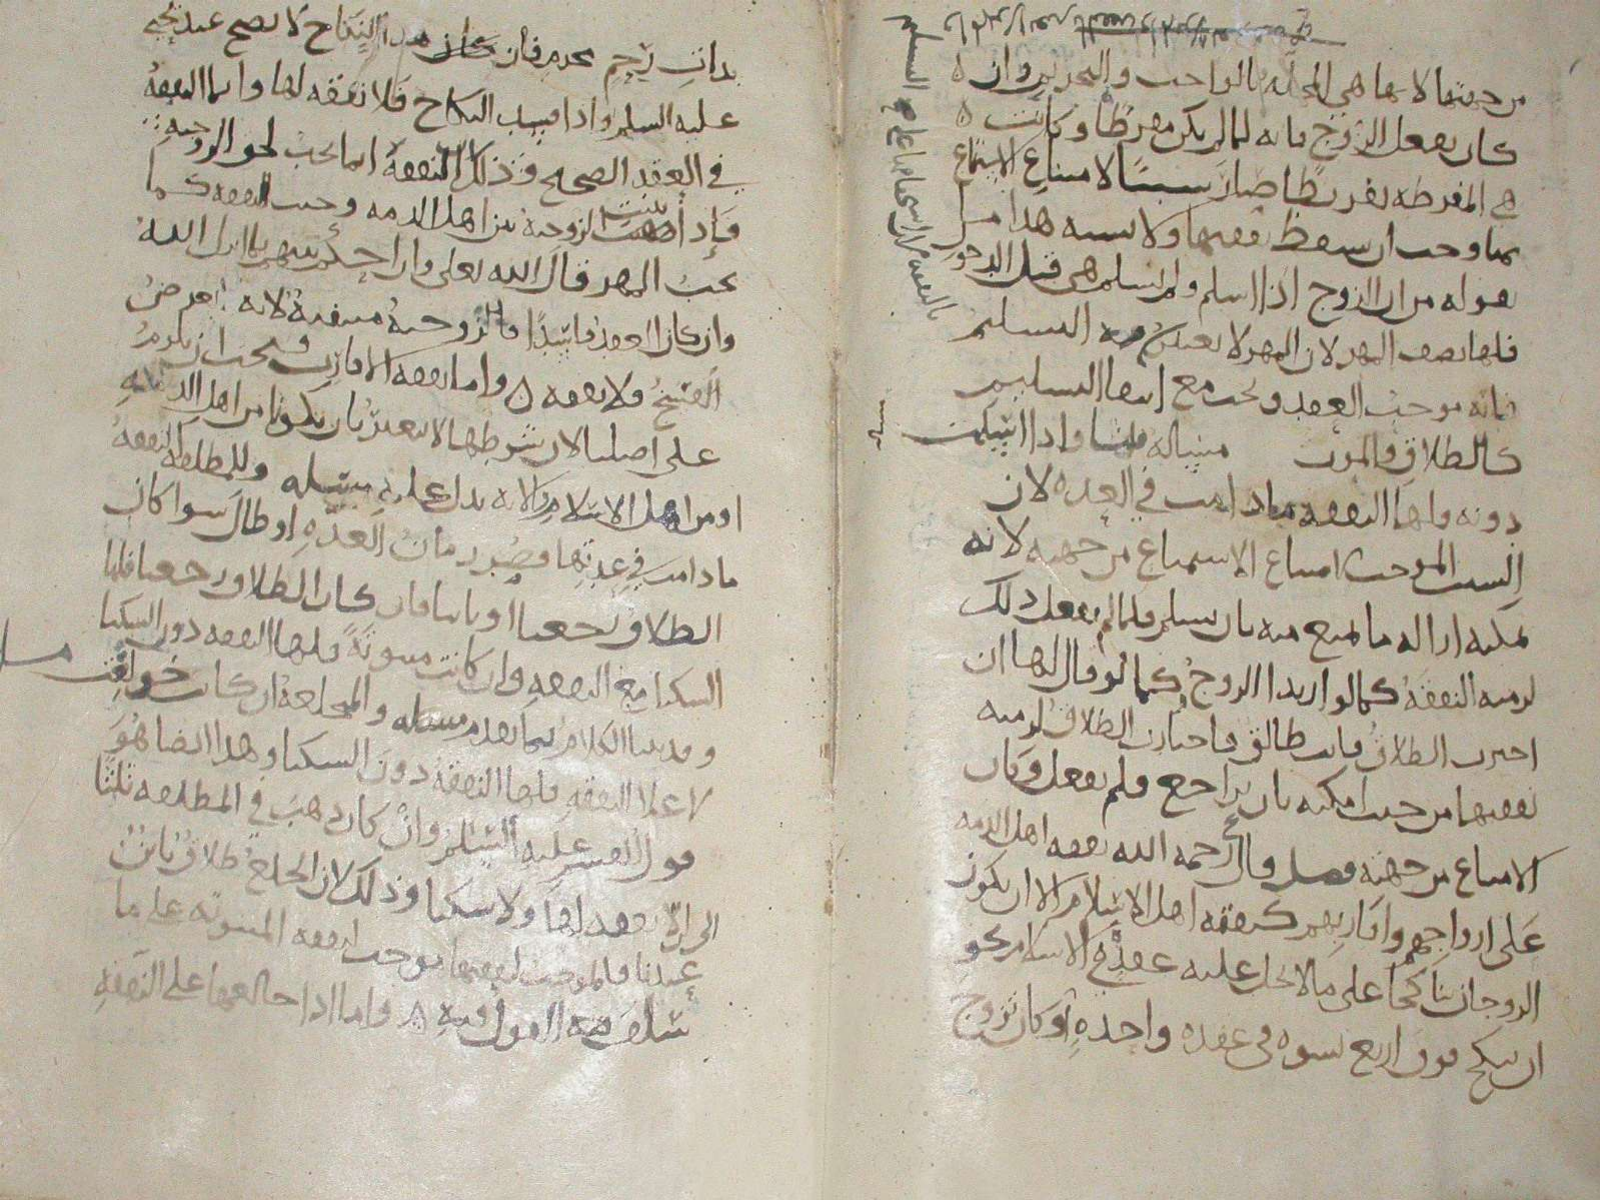 من جهتها لانها هي المخلة بالواجب والتحريم وان
كان بفعل الزوج فانه لما لم يكن مفرطا وكانت
هي المفرطه تفريطا صار سببا لامتناع الاستمتاع
بما وجب ان سقط نفقتها ولا يشبه هذا ما
نقوله من ان الزوج اذا اسلم ولم تسلم هي قبل الدخول
فلها نصف المهر لان المهر لا يعتبر فيه التسليم
فانه موجب العقد ويجب مع انتفا التسليم
كالطلاق والموت مسأله قلنا واذا اسلمت
دونه فلها النفقه مادامت في العده لان
السبب الموجب امتناع الاستمتاع من جهته لانه
يمكنه ازاله ما يمنع منه بان يسلم فلما لم يفعل ذلك
لزمته النفقة كما لو ارتد الزوج وكما لو قال لها ان
اخترت الطلاق فانت طالق فاختارت الطلاق لزمته
نفقتها من حيث امكنه بان يراجع ولم يفعل وكان
الامتناع من جهته فصل قال رحمه الله نفقه اهل الذمه
على ازواجهم واقاربهم كنفقه اهل الاسلام الا ان يكون
الزوجان تناكحا على ما لا يحل عليه عقده في الاسلام نحو
ان ينكح فوق اربع نسوه في عقده واحدة او كان تزوج
بالنفقه
بذات رحم محرم فان هذا النكاح لا يصح عند يحيى
عليه السلم واذا فسد النكاح فلا نفقه لها وانما النفقة
في العقد الصحيح وذلك ان النفقة انما تجب لحق الزوجية
فإذا ثبتت الزوجية بين اهل الذمه وجبت النفقه كما
يجب المهر قال الله تعلى وان احكم بينهم بما انزل الله
وان كان العقد فاسدا فالزوجية منتفية لانه
الفسخ فلا نفقه واما نفقه الاقارب فيجب ان تلزم
على اصلنا لان شرطها لا يتغير بان يكونا من اهل الذمه
او من اهل الاسلام ولانه يدل عليه مسله وللمطلقه النفقة
ما دامت في عدتها قصر زمان العدة او طال سوا كان
الطلاق رجعيا او باينا فان كان الطلاق رجعيا فلها
السكنا مع النفقه وان كانت مبتوتة فلها النفقه دون السكنا
وقد بينا الكلام فيما تقدم مسله والمختلعة ان كانت خولعت
لا على النفقه فلها النفقة دون السكنا وهذا ايضا هو
قول القسم عليه السلم وان كان ذهب في المطلقه ثلثا
الى ان لا نفقه لها ولا سكنا وذلك لان الخلع طلاق باين
عندنا فالموجب لنفقتها موجب لنفقه المبتوته على ما
سلف فيه القول فيه واما اذا خالعها على النفقة